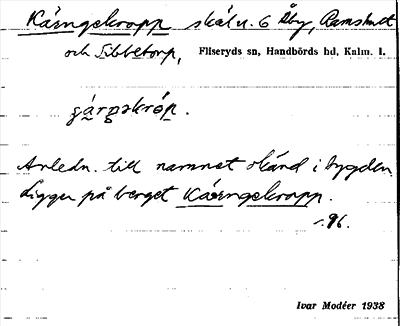 Käringekropp skål n. 6 Åby, Ramshult
och Sibbetorp, Fliseryds sn, Handbörds hd, Kalm. l.
Anledn. till namnet okänd i bygden
Ligger på berget Käringekropp.
s. 96.
Ivar Modéer 1938